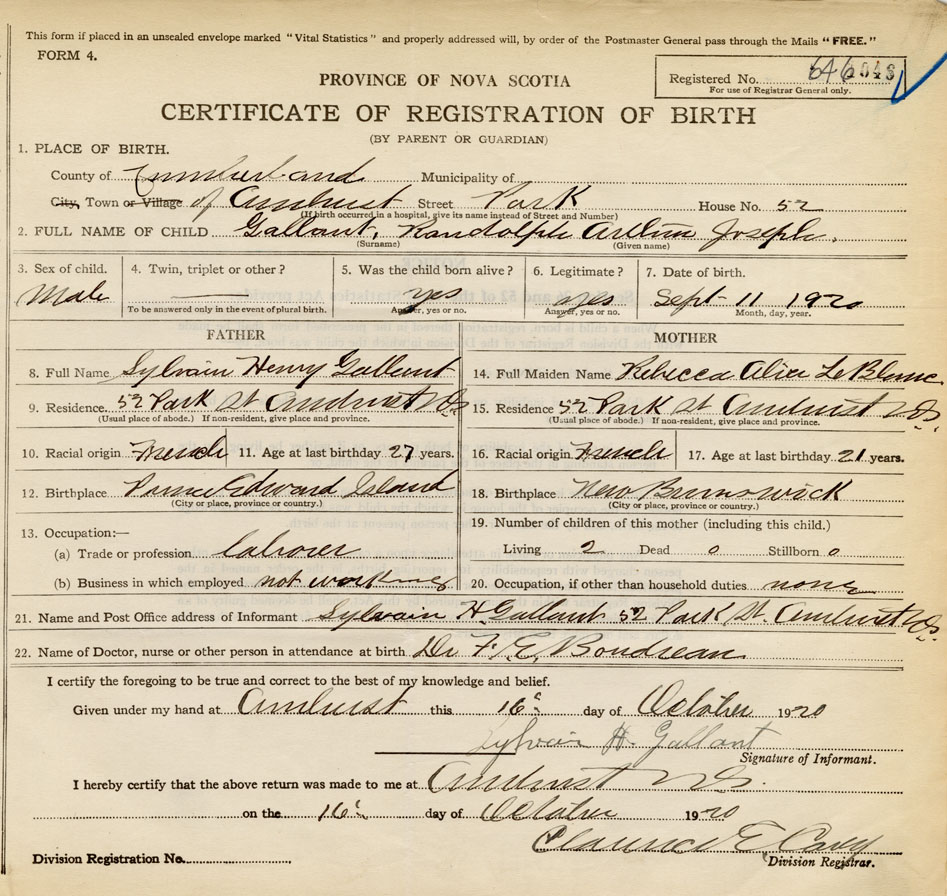 This form if placed in an unsealed envelope marked "Vital Statistics" and properly addressed will, by order of the Postmaster General pass through the Mails "FREE."
FORM 4.
PROVINCE OF NOVA SCOTIA
Registered No. 646
For use of Registrar General only.
CERTIFICATE OF REGISTRATION OF BIRTH
(BY PARENT OR GUARDIAN)
1. PLACE OF BIRTH.
County of Cumberland Municipality of
City, Town or Village of Amherst Street Park House No. 52
(If birth occurred in a hospital, give its name instead of Street and Number)
2. FULL NAME OF CHILD Gallant, Randolph Joseph.
(Surname) (Given name)
3. Sex of child. 4. Twin, triplet or other? 5. Was the child born alive? 6. Legitimate? 7. Date of birth.
Male yes yes Sept 11 1920
To be answered only in the event of plural birth. Answer, yes or no. Answer, yes or no. Month, day, year.
FATHER MOTHER
8. Full Name Sylvain Henry Gallant 14. Full Maiden Name Rebecca Alice Le Blanc
9. Residence. 52 Park St Amherst NS 15. Residence 52 Park St Amherst NS.
(Usual place of abode.) If non-resident, give place and province. (Usual place of abode.) If non-resident, give place and province.
10. Racial origin French 11. Age at last birthday 27 years. 16. Racial origin French 17. Age at last birthday 21 years.
12. Birthplace Prince Edward Island 18. Birthplace New Brunswick
(City or place, province or country.) (City or place, province or country.)
13. Occupation:— 19. Number of children of this mother (including this child.)
(a) Trade or profession laborer Living 2 Dead 0 Stillborn 0
(b) Business in which employed not working 20. Occupation, if other than household duties none
21. Name and Post Office address of Informant Sylvain H Gallant 52 Park St. Amherst NS.
22. Name of Doctor, nurse or other person in attendance at birth Dr F. E. Boudreau
I certify the foregoing to be true and correct to the best of my knowledge and belief.
Given under my hand at Amherst this 16 day of October 1920
Sylvain H. Gallant
Signature of Informant.
I hereby certify that the above return was made to me at Amherst NS.
on the 16 day of October 1920
Clarence E.
Division Registration No. Division Registrar.